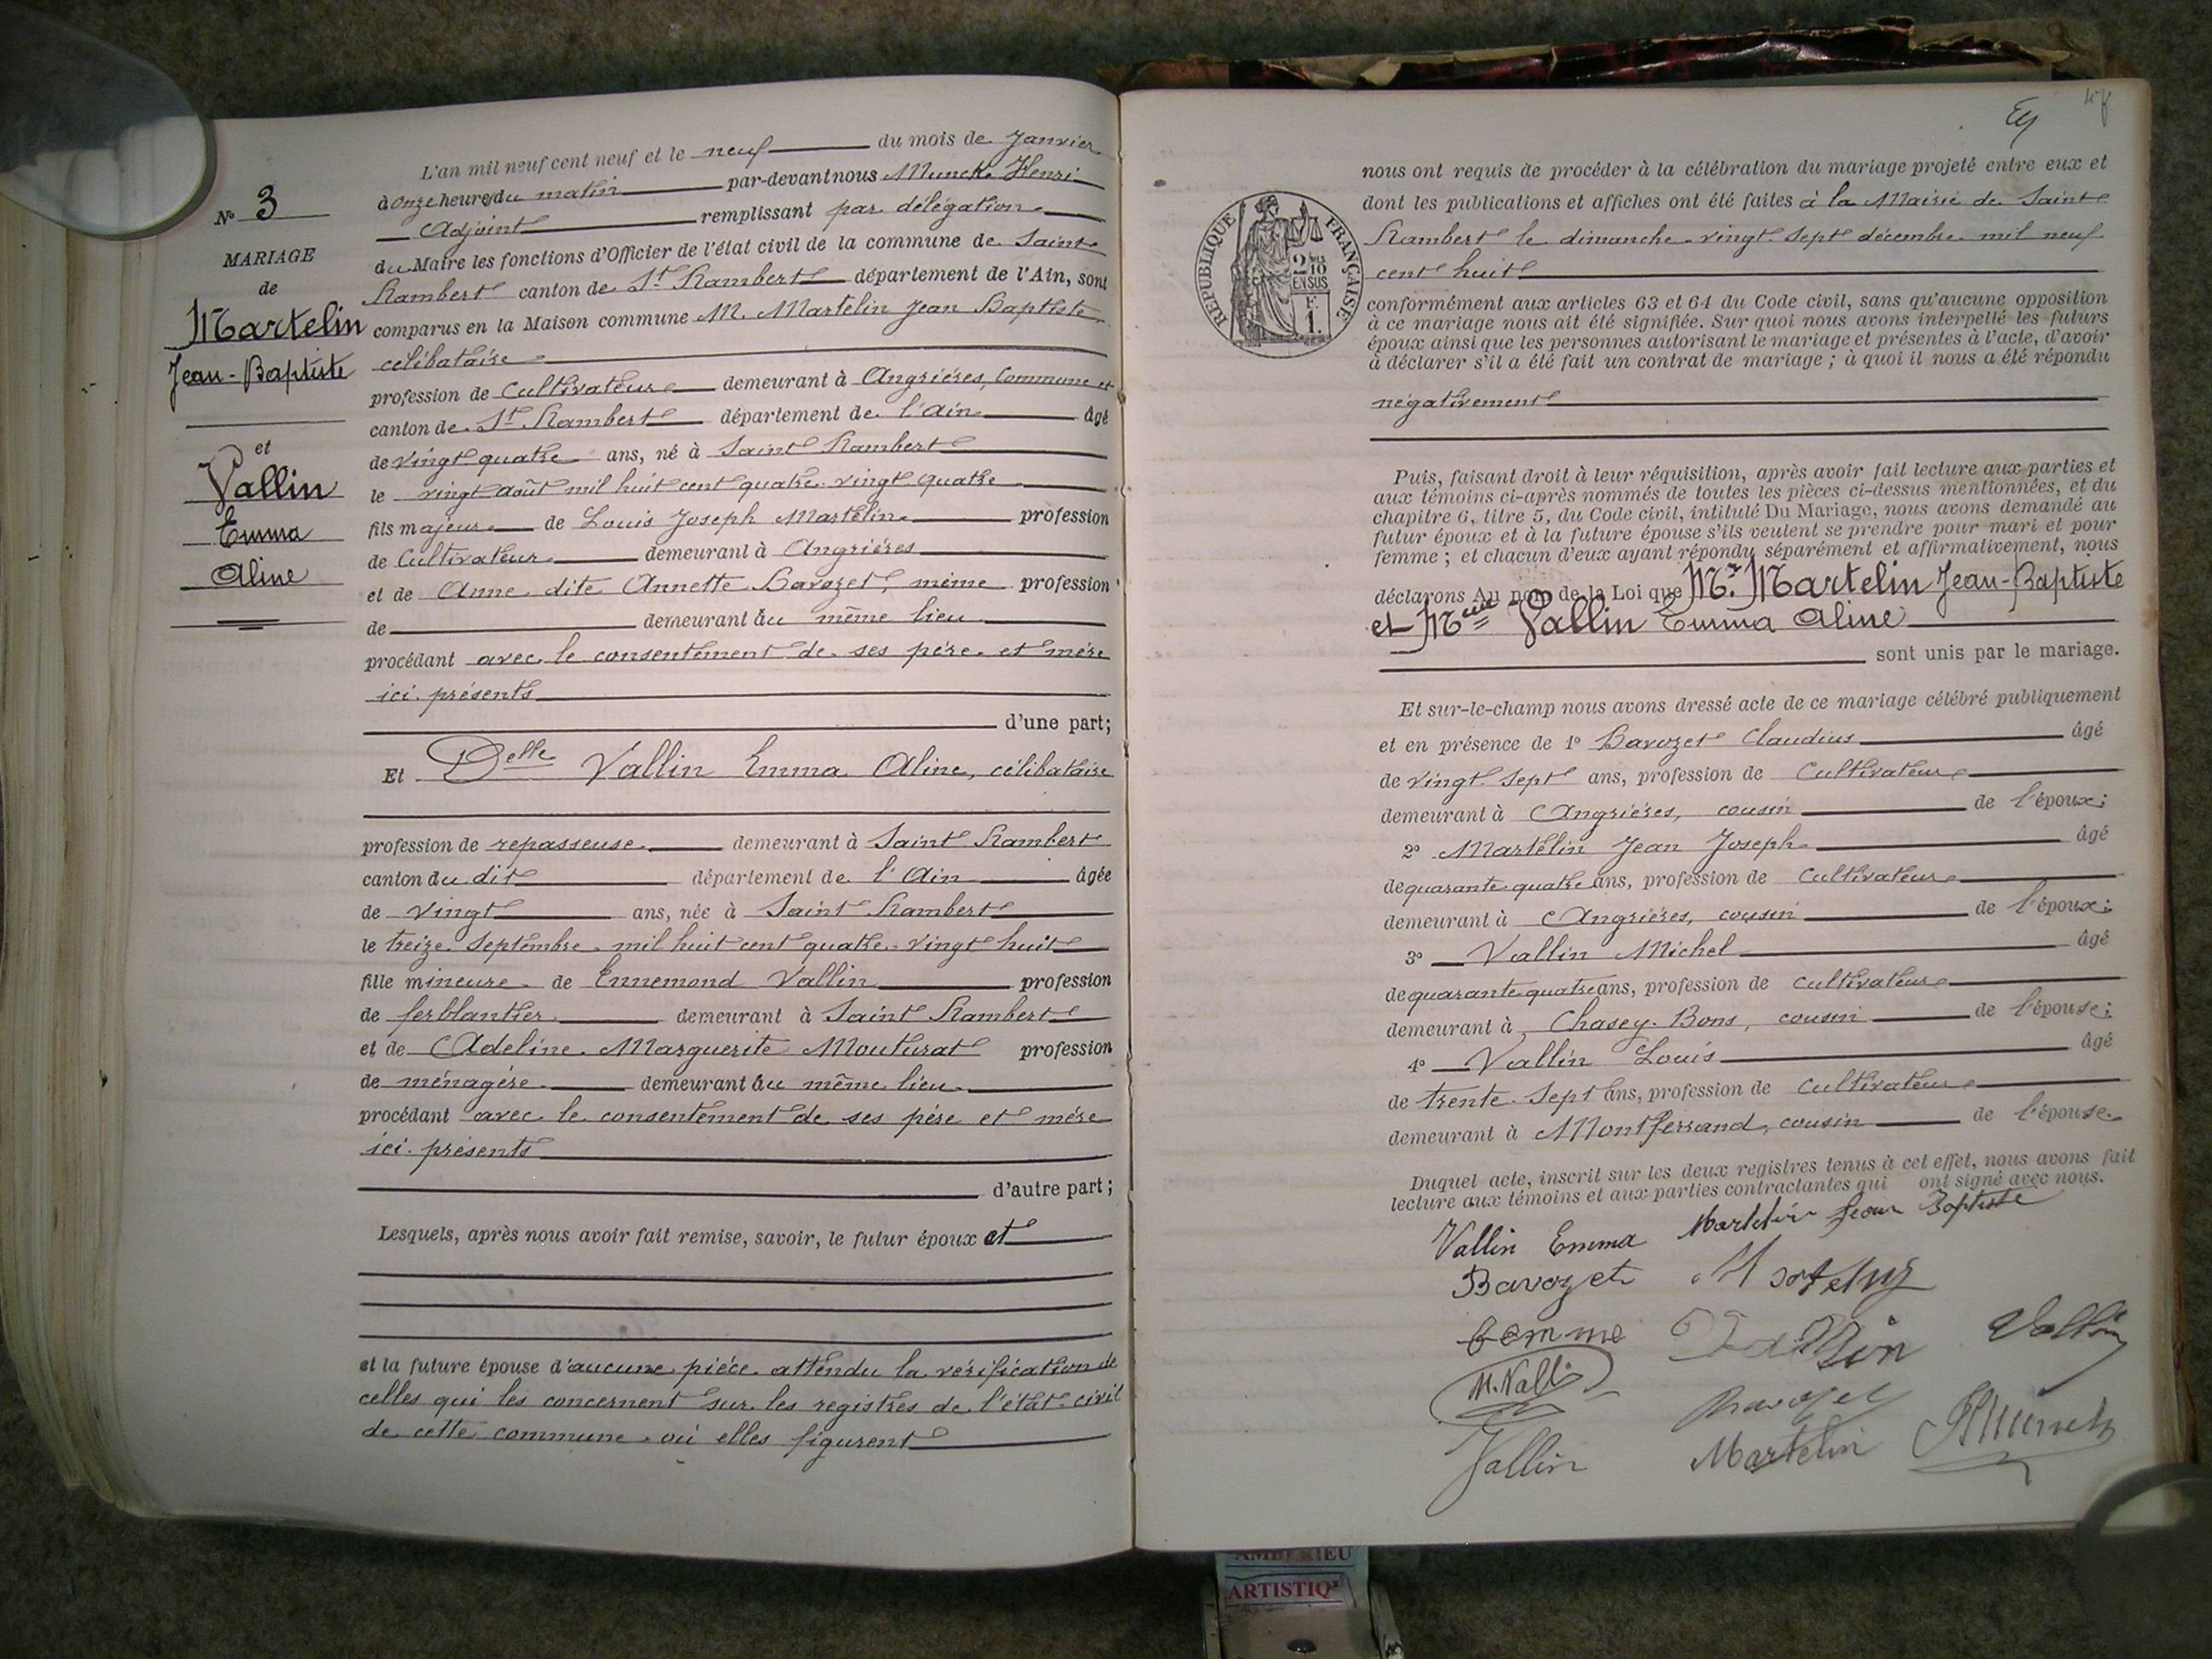 N° 3
MARIAGE
de
Martelin
Jean-Baptiste
et
Vallin
Emma
Aline
L'an mil neuf cent neuf et le neuf du mois de Janvier
à onze heures du matin par-devant nous Munck Henri
Adjoint remplissant par délégation
du Maire les fonctions d'Officier de l'état civil de la commune de Saint
Rambert canton de St Rambert département de l'Ain, sont
comparus en la Maison commune M. Martelin Jean Baptiste
célibataire
profession de Cultivateur demeurant à Angrières, Commune et
canton de St Rambert département de l'Ain âgé
de vingt quatre ans, né à Saint Rambert
le vingt août mil huit cent quatre vingt quatre
fils majeur de Louis Joseph Martelin profession
de Cultivateur demeurant à Angrières
et de Anne dite Annette Bavozet, même profession
de demeurant au même lieu
procédant avec le consentement de ses père et mère
ici présents
d'une part;
Et Delle Vallin Emma Aline, célibataire
profession de repasseuse demeurant à Saint Rambert
canton du dit département de l'Ain âgée
de vingt ans, née à Saint Rambert
le treize Septembre mil huit cent quatre vingt huit
fille mineure de Ennemond Vallin profession
de ferblantier demeurant à Saint Rambert
et de Adeline Marguerite Mouturat profession
de ménagère demeurant au même lieu
procédant avec le consentement de ses père et mère
ici présents
d'autre part;
Lesquels, après nous avoir fait remise, savoir, le futur époux et
et la future épouse d'aucune pièce attendu la vérification de
celles qui les concernent sur les registres de l'état-civil
de cette commune où elles figurent
RÉPUBLIQUE FRANÇAISE
2/10
EN SUS
F.
1.
nous ont requis de procéder à la célébration du mariage projeté entre eux et
dont les publications et affiches ont été faites à la Mairie de Saint
Rambert le dimanche vingt sept décembre mil neuf
cent huit
conformément aux articles 63 et 64 du Code civil, sans qu'aucune opposition
à ce mariage nous ait été signifiée. Sur quoi nous avons interpellé les futurs
époux ainsi que les personnes autorisant le mariage et présentes à l'acte, d'avoir
à déclarer s'il a été fait un contrat de mariage ; à quoi il nous a été répondu
négativement
Puis, faisant droit à leur réquisition, après avoir fait lecture aux parties et
aux témoins ci-après nommés de toutes les pièces ci-dessus mentionnées, et du
chapitre 6, titre 5, du Code civil, intitulé Du Mariage, nous avons demandé au
futur époux et à la future épouse s'ils veulent se prendre pour mari et pour
femme ; et chacun d'eux ayant répondu séparément et affirmativement, nous
déclarons Au nom de la Loi que Mr Martelin Jean-Baptiste
et Melle Vallin Emma Aline
sont unis par le mariage.
Et sur-le-champ nous avons dressé acte de ce mariage célébré publiquement
et en présence de 1° Bavozet Claudius âgé
de vingt sept ans, profession de Cultivateur
demeurant à Angrières, cousin de l'époux;
2° Martelin Jean Joseph âgé
de quarante quatre ans, profession de Cultivateur
demeurant à Angrières, cousin de l'époux;
3° Vallin Michel âgé
de quarante quatre ans, profession de cultivateur
demeurant à Chasey-Bons, cousin de l'épouse;
4° Vallin Louis âgé
de trente Sept ans, profession de Cultivateur
demeurant à Montferrand, cousin de l'épouse.
Duquel acte, inscrit sur les deux registres tenus à cet effet, nous avons fait
lecture aux témoins et aux parties contractantes qui ont signé avec nous.
Vallin Emma Martelin Jean Baptiste
Bavozet
femme Vallin Vallin
M. Vallin
Bavozet
Vallin Martelin HMunck
AMBERIEU
ARTISTIQ